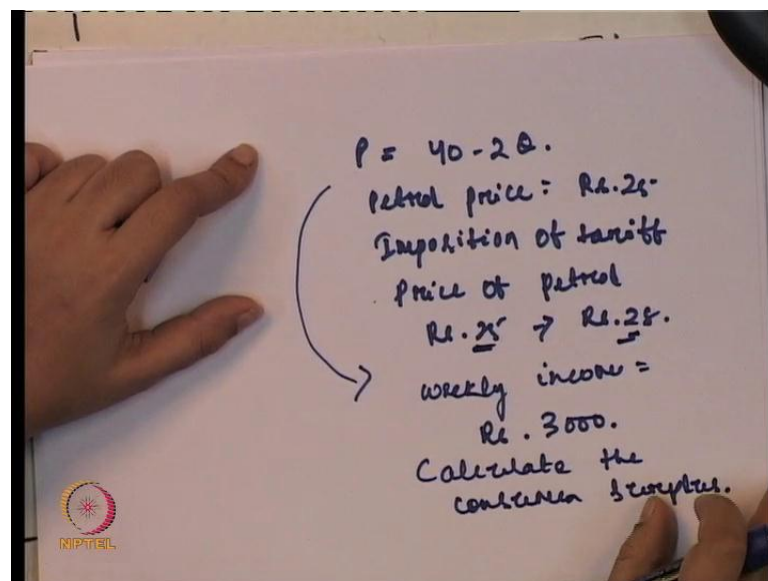 P = 40 - 2Q.
Petrol price = Rs. 25.
Imposition of tariff
Price of petrol
Rs. 25 → Rs. 28.
weekly income =
Rs. 3000.
Calculate the
consumer surplus.
NPTEL